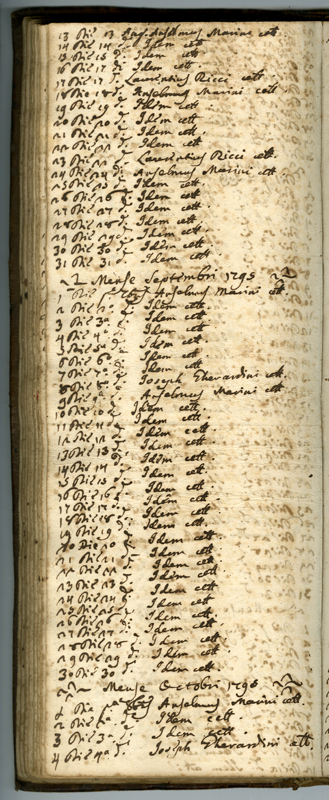 13 Die 13 d. Anselmus Marini cett.
14 Die 14 d. Idem cett
15 Die 15 d. Idem cett
16 Die 17 d. Idem cett
17 Die 17 d. Laurentius Ricci cett.
18 Die 18 d. Anselmus Marini cett.
19 Die 19 d. Idem cett.
20 Die 20 d. Idem cett
21 Die 21 d. Idem cett.
22 Die 22 d. Idem cett
23 Die d. Laurentius Ricci cett.
24 Die 24 d. Anselmus Marini cett.
25 Die 25 d. Idem cett
26 Die 26 d. Idem cett
27 Die 27 d. Idem cett
28 Die 28 d. Idem cett
29 Die 29 d. Idem cett.
30 Die 30 d. Idem cett
31 Die 31 d. Idem cett.
Mense Septembri 1795
1 Die Anselmus Marini cett.
2 Die 2a d. Idem cett.
3 Die 3a d. Idem cett.
4 Die 4a d. Idem cett
5 Die 5a d. Idem cett.
6 Die 6a d. Idem cett
7 Die 7a d. Idem cett.
8 Die 8a d. Joseph Gherardini cett.
9 Die 9a d. Anselmus Marini cett.
10 Die 10 d. Idem cett
11 Die 11 d. Idem cett.
12 Die 12 d. Idem cett
13 Die 13 d. Idem cett.
14 Die 14 d. Idem cett
15 Die 15 d. Idem cett.
16 Die 16 d. Idem cett.
17 Die 17 d. Idem cett
18 Die 18 d. Idem cett.
19 Die 19 d. Idem cett.
20 Die 20 d. Idem cett.
21 Die 21 d. Idem cett
22 Die 22 d. Idem cett
23 Die 23 d. Idem cett.
24 Die 24 d. Idem cett
25 Die 25 d. Idem cett
26 Die 26 d. Idem cett.
27 Die 27 d. Idem cett
28 Die 28 d. Idem cett
29 Die 29 d. Idem cett.
30 Die 30 d. Idem cett
Mense Octobri 1795
1 Die Anselmus Marini cett.
2 Die 2a d. Idem cett.
3 Die 3a d. Idem cett.
4 Die 4a d. Joseph Gherardini cett.